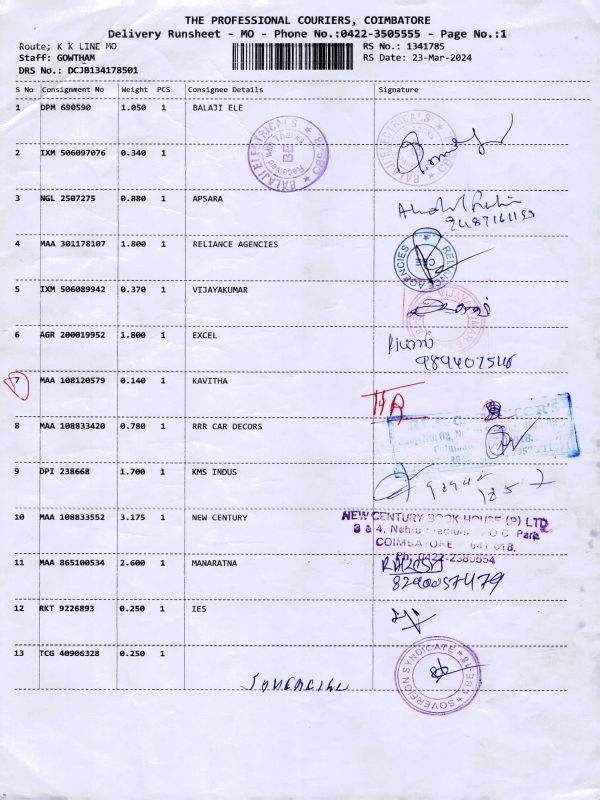 THE PROFESSIONAL COURIERS, COIMBATORE
Delivery Runsheet - MO - Phone No.:0422-3505555 - Page No.:1
Route; K K LINE MO
RS No.: 1341785
Staff: GOWTHAM
RS Date: 23-Mar-2024
DRS No.: DCJB134178501
S No Consignment No Weight PCS Consignee Details Signature
1 DPM 690590 1.050 1 BALAJI ELE
BALAJI ELECTRICALS ★ CBE
Received with Thanks
2 IXM 506097076 0.340 1
3 NGL 2507275 0.880 1 APSARA
4 MAA 301178107 1.800 1 RELIANCE AGENCIES
RELIANCE AGENCIES ★
CBE
5 IXM 506089942 0.370 1 VIJAYAKUMAR
VIJAYA
6 AGR 200019952 1.800 1 EXCEL
7 MAA 108120579 0.140 1 KAVITHA
8 MAA 108833420 0.780 1 RRR CAR DECORS
9 DPI 238668 1.700 1 KMS INDUS
10 MAA 108833552 3.175 1 NEW CENTURY
NEW CENTURY BOOK HOUSE (P) LTD
3 & 4, Nehru Stadium, V O C Park
COIMBATORE 641 018.
Ph: 0422-2380554
11 MAA 865100534 2.600 1 MANARATNA
12 RKT 9226893 0.250 1 IES
13 TCG 40906328 0.250 1
SOVEREIGN SYNDICATE ★ CBE-18 ★